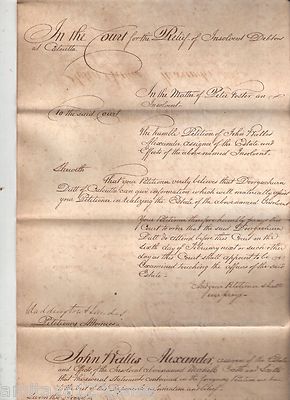 In the Court for the Relief of Insolvent Debtors
at Calcutta
In the Matter of Peter Foster an
Insolvent.
To the said Court
The humble Petition of John Balles
Alexander, Assignee of the Estate and
Effects of the abovenamed Insolvent.
Sheweth
That your Petitioner verily believes that Doorgachurn
Dutt of Calcutta can give information which will materially assist
your Petitioner in realizing the Estate of the abovenamed Insolvent
Your Petitioner therefore humbly prays this
Court to order that the said Doorgachurn
Dutt do attend before this Court on the
sixth day of February next or such other
day as this Court shall appoint to be
Examined touching the affairs of the said
Estate.
And your Petitioner shall
ever pray
Petitioners Attornies
John Balles Alexander, assignee of the Estate
and Effects of the Insolvent abovenamed maketh Oath and saith
that the several statements contained in the foregoing Petition are true